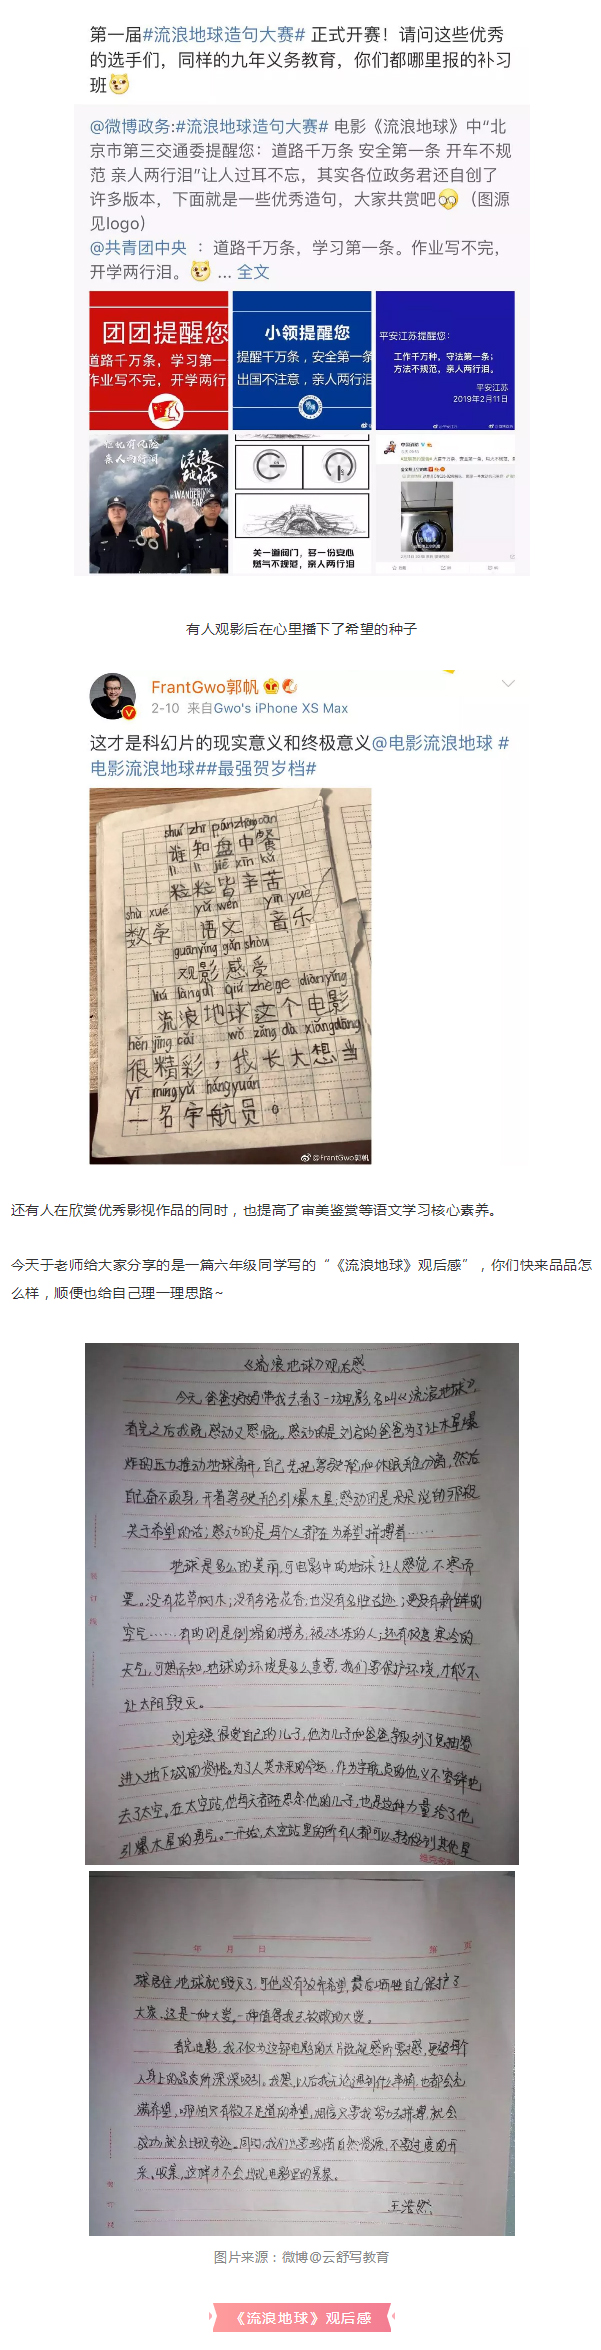 第一届#流浪地球造句大赛# 正式开赛！请问这些优秀
的选手们，同样的九年义务教育，你们都哪里报的补习
班
@微博政务:#流浪地球造句大赛# 电影《流浪地球》中“北
京市第三交通委提醒您：道路千万条 安全第一条 开车不规
范 亲人两行泪”让人过耳不忘，其实各位政务君还自创了
许多版本，下面就是一些优秀造句，大家共赏吧（图源
见logo）
@共青团中央 ：道路千万条，学习第一条。作业写不完，
开学两行泪。 ... 全文
团团提醒您
道路千万条，学习第一
作业写不完，开学两行
小领提醒您
提醒千万条，安全第一条
出国不注意，亲人两行泪
平安江苏提醒您：
工作千万种，守法第一条；
方法不规范，亲人两行泪。
平安江苏
2019年2月11日
亲人两行泪
流浪
地球
关一道阀门，多一份安心
燃气不规范，亲人两行泪
有人观影后在心里播下了希望的种子
FrantGwo郭帆
2-10 来自Gwo's iPhone XS Max
这才是科幻片的现实意义和终极意义@电影流浪地球 #
电影流浪地球##最强贺岁档#
shuí zhī pán zhōng cān
谁知盘中餐
lì lì jiē xīn kǔ
粒粒皆辛苦
shù xué yǔ wén yīn yuè
数学 语文 音乐
guān yǐng gǎn shòu
观影感受
liú làng dì qiú zhè ge diàn yǐng
流浪地球这个电影
hěn jīng cǎi wǒ zǎng dà xiǎng dāng
很精彩，我长大想当
yī míng yǔ háng yuán
一名宇航员。
@FrantGwo郭帆
还有人在欣赏优秀影视作品的同时，也提高了审美鉴赏等语文学习核心素养。
今天于老师给大家分享的是一篇六年级同学写的“《流浪地球》观后感”，你们快来品品怎
么样，顺便也给自己理一理思路~
《流浪地球》观后感
今天，爸爸妈妈带我去看了一场电影，名叫《流浪地球》，
看完之后我既感动又感慨。感动的是刘启的爸爸为了让木星爆
炸的压力推动地球离开，自己先把驾驶舱和休眠舱分离，然后
自己奋不顾身，开着驾驶舱引爆木星；感动的是朵朵说的那段
关于希望的话；感动的是每个人都在为希望拼搏着……
地球是多么的美丽，可电影中的地球让人感觉不寒而
栗。没有花草树木；没有鸟语花香；也没有名胜古迹；更没有新鲜的
空气……有的则是倒塌的楼房，被冰冻的人；还有极度寒冷的
天气，可想而知，地球的环境是多么重要，我们要保护环境，才能不
让太阳毁灭。
刘培强很爱自己的儿子，他为儿子和爸爸争取到了免抽签
进入地下城的资格。为了人类未来的命运，作为宇航员的他义不容辞地
去了太空。在太空站，他每天都在思念他的儿子，也是这种力量给了他
引爆木星的勇气。一开始，太空站里的所有人都可以移居到其他星
年 月 日 第 页
球居住，地球就毁灭了，可他没有放弃希望，最后牺牲自己保护了
大家。这是一种大爱，一种值得我去敬佩的大爱。
看完电影，我不仅为这部电影的大片既视感所震撼，更被每个
人身上的品质所深深吸引。我想，以后我无论遇到什么事情，也都会充
满希望，哪怕只有微不足道的希望，相信只要我努力去拼搏，就会
成功，就会出现奇迹。同时，我们也要珍惜自然资源，不要过度的开
采、收集，这样才不会出现电影里的景象。
王浩然
图片来源：微博@云舒写教育
《流浪地球》观后感